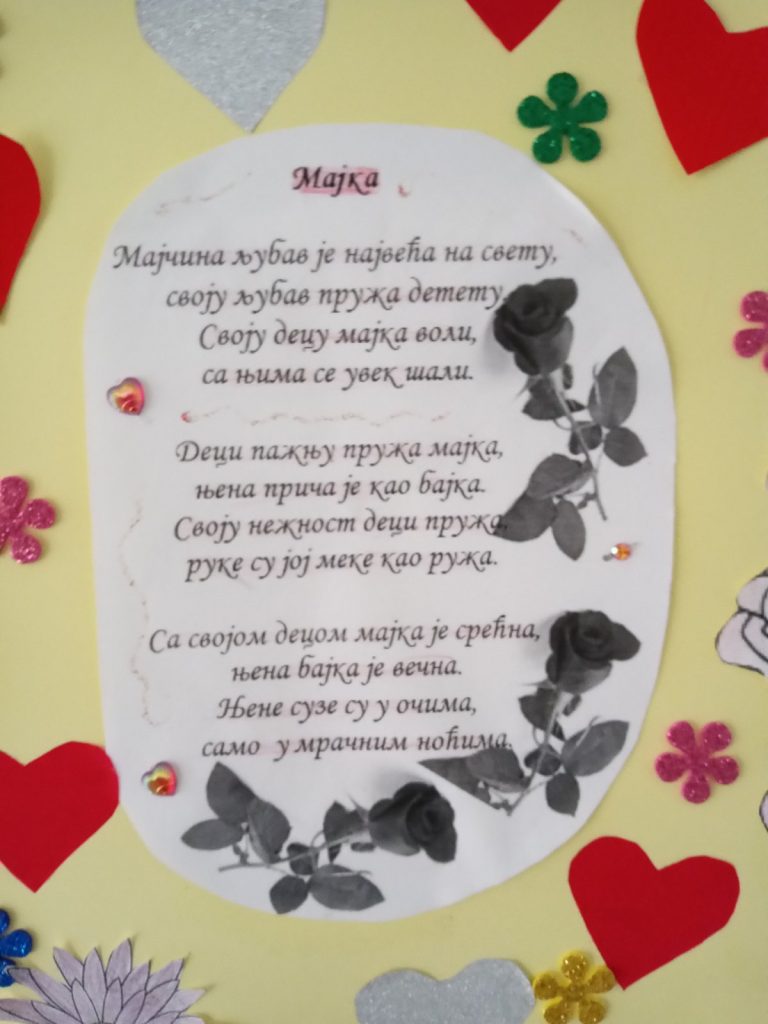 Мајка
Мајчина љубав је највећа на свету,
своју љубав пружа детету.
Своју децу мајка воли,
са њима се увек шали.
Деци пажњу пружа мајка,
њена прича је као бајка.
Своју нежност деци пружа,
руке су јој меке као ружа.
Са својом децом мајка је срећна,
њена бајка је вечна.
Њене сузе су у очима,
само у мрачним ноћима.